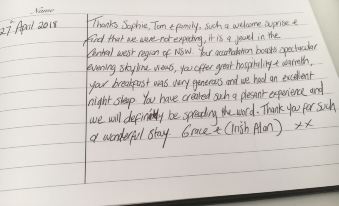 Name
27th April 2018
Thanks Sophie, Tom & family, such a welcome suprise &
find that we were not expecting, it is a jewel in the
central west region of NSW. Your accomodation boasts spectacular
evening skyline views, you offer great hospitality & warmth,
your breakfast was very generous and we had an excellent
night sleep. You have created such a plesant experience and
we will definitely be spreading the word. Thank you for such
a wonderful stay Grace & (Irish Alan) xx